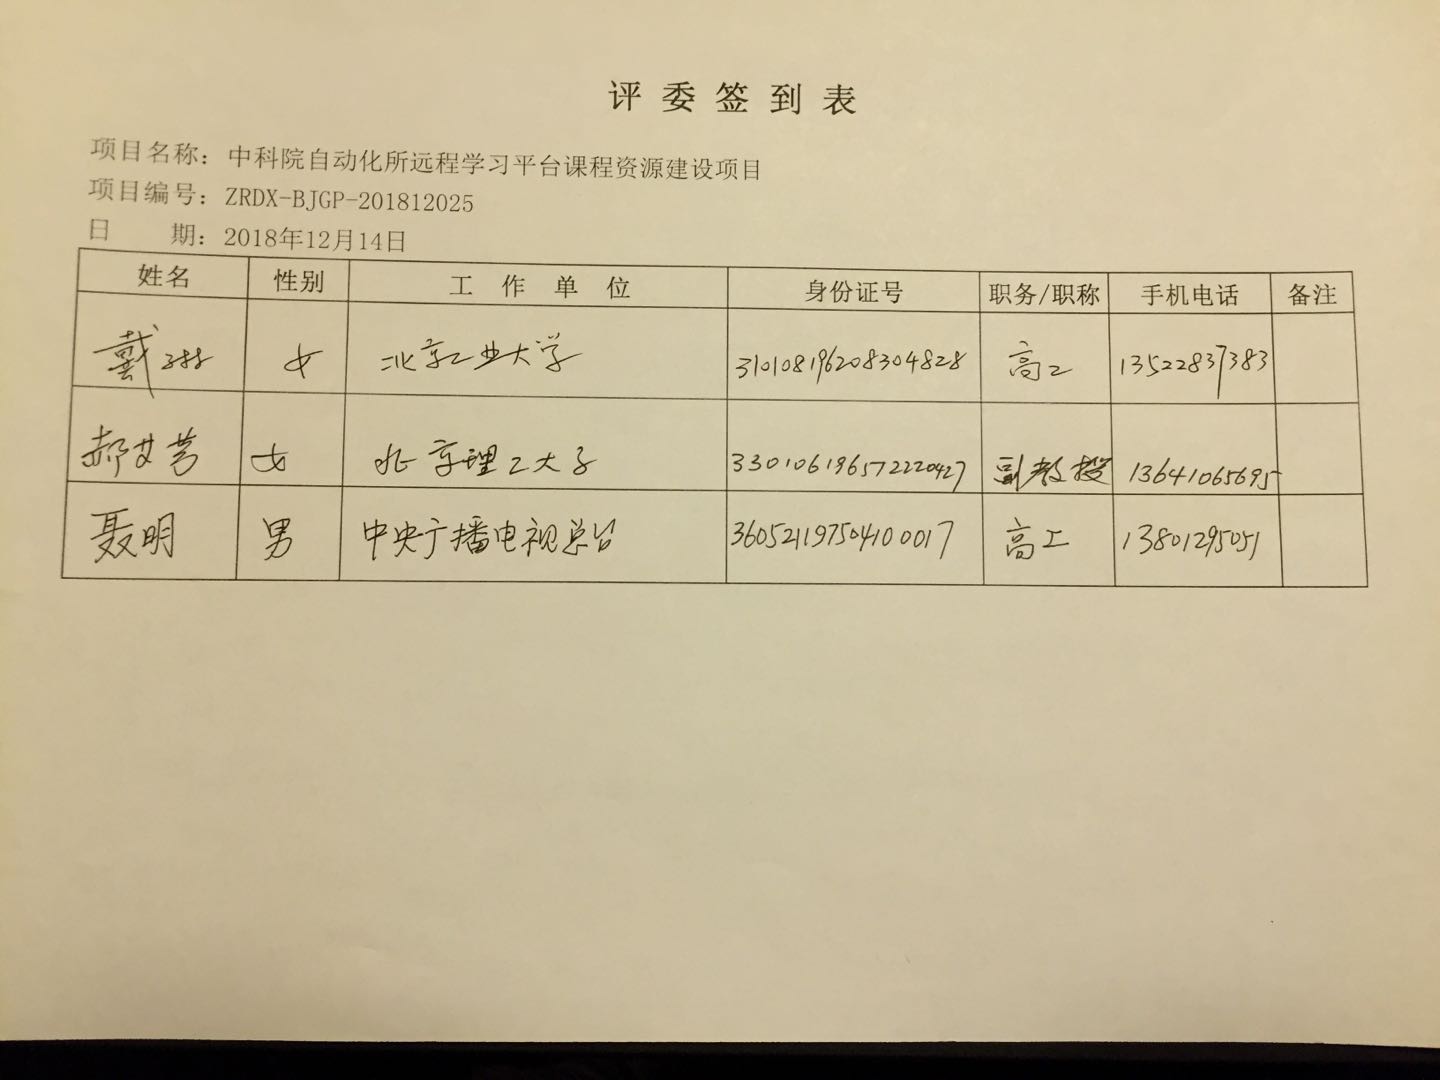 评委签到表
项目名称：中科院自动化所远程学习平台课程资源建设项目
项目编号：ZRDX-BJGP-201812025
日 期：2018年12月14日
姓名 性别 工作单位 身份证号 职务/职称 手机电话 备注
戴 女 北京工业大学 310108196208304828 高工 13522837383
郝艾芳 女 北京理工大学 高工 副教授 13641065695
聂明 男 中央广播电视总台 360521197504100017 高工 13801295051